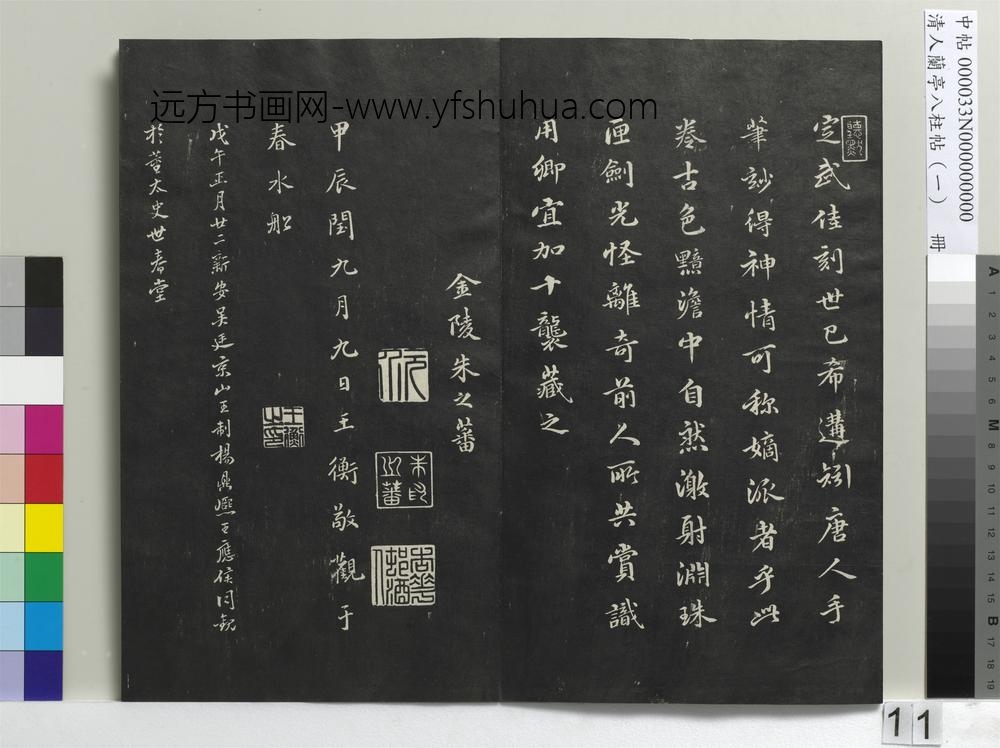 定武佳刻世已希遘矧唐人手
筆玅得神情可称嫡派者乎此
卷古色黯澹中自然激射淵珠
匣劍光怪離奇前人所共賞識
用卿宜加十襲藏之
金陵朱之蕃
甲辰閏九月九日王衡敬觀于
春水船
戊午正月廿二新安吴廷京山王制楊鼎熈王應侯同觀
於董太史世春堂
王衡之印
朱之蕃
远方书画网-www.yfshuhua.com
中帖 000033N000000000
清人蘭亭八柱帖（一） 冊
A 1 2 3 4 5 6 M 8 9 10 11 12 13 14 15 B 17 18 19
11